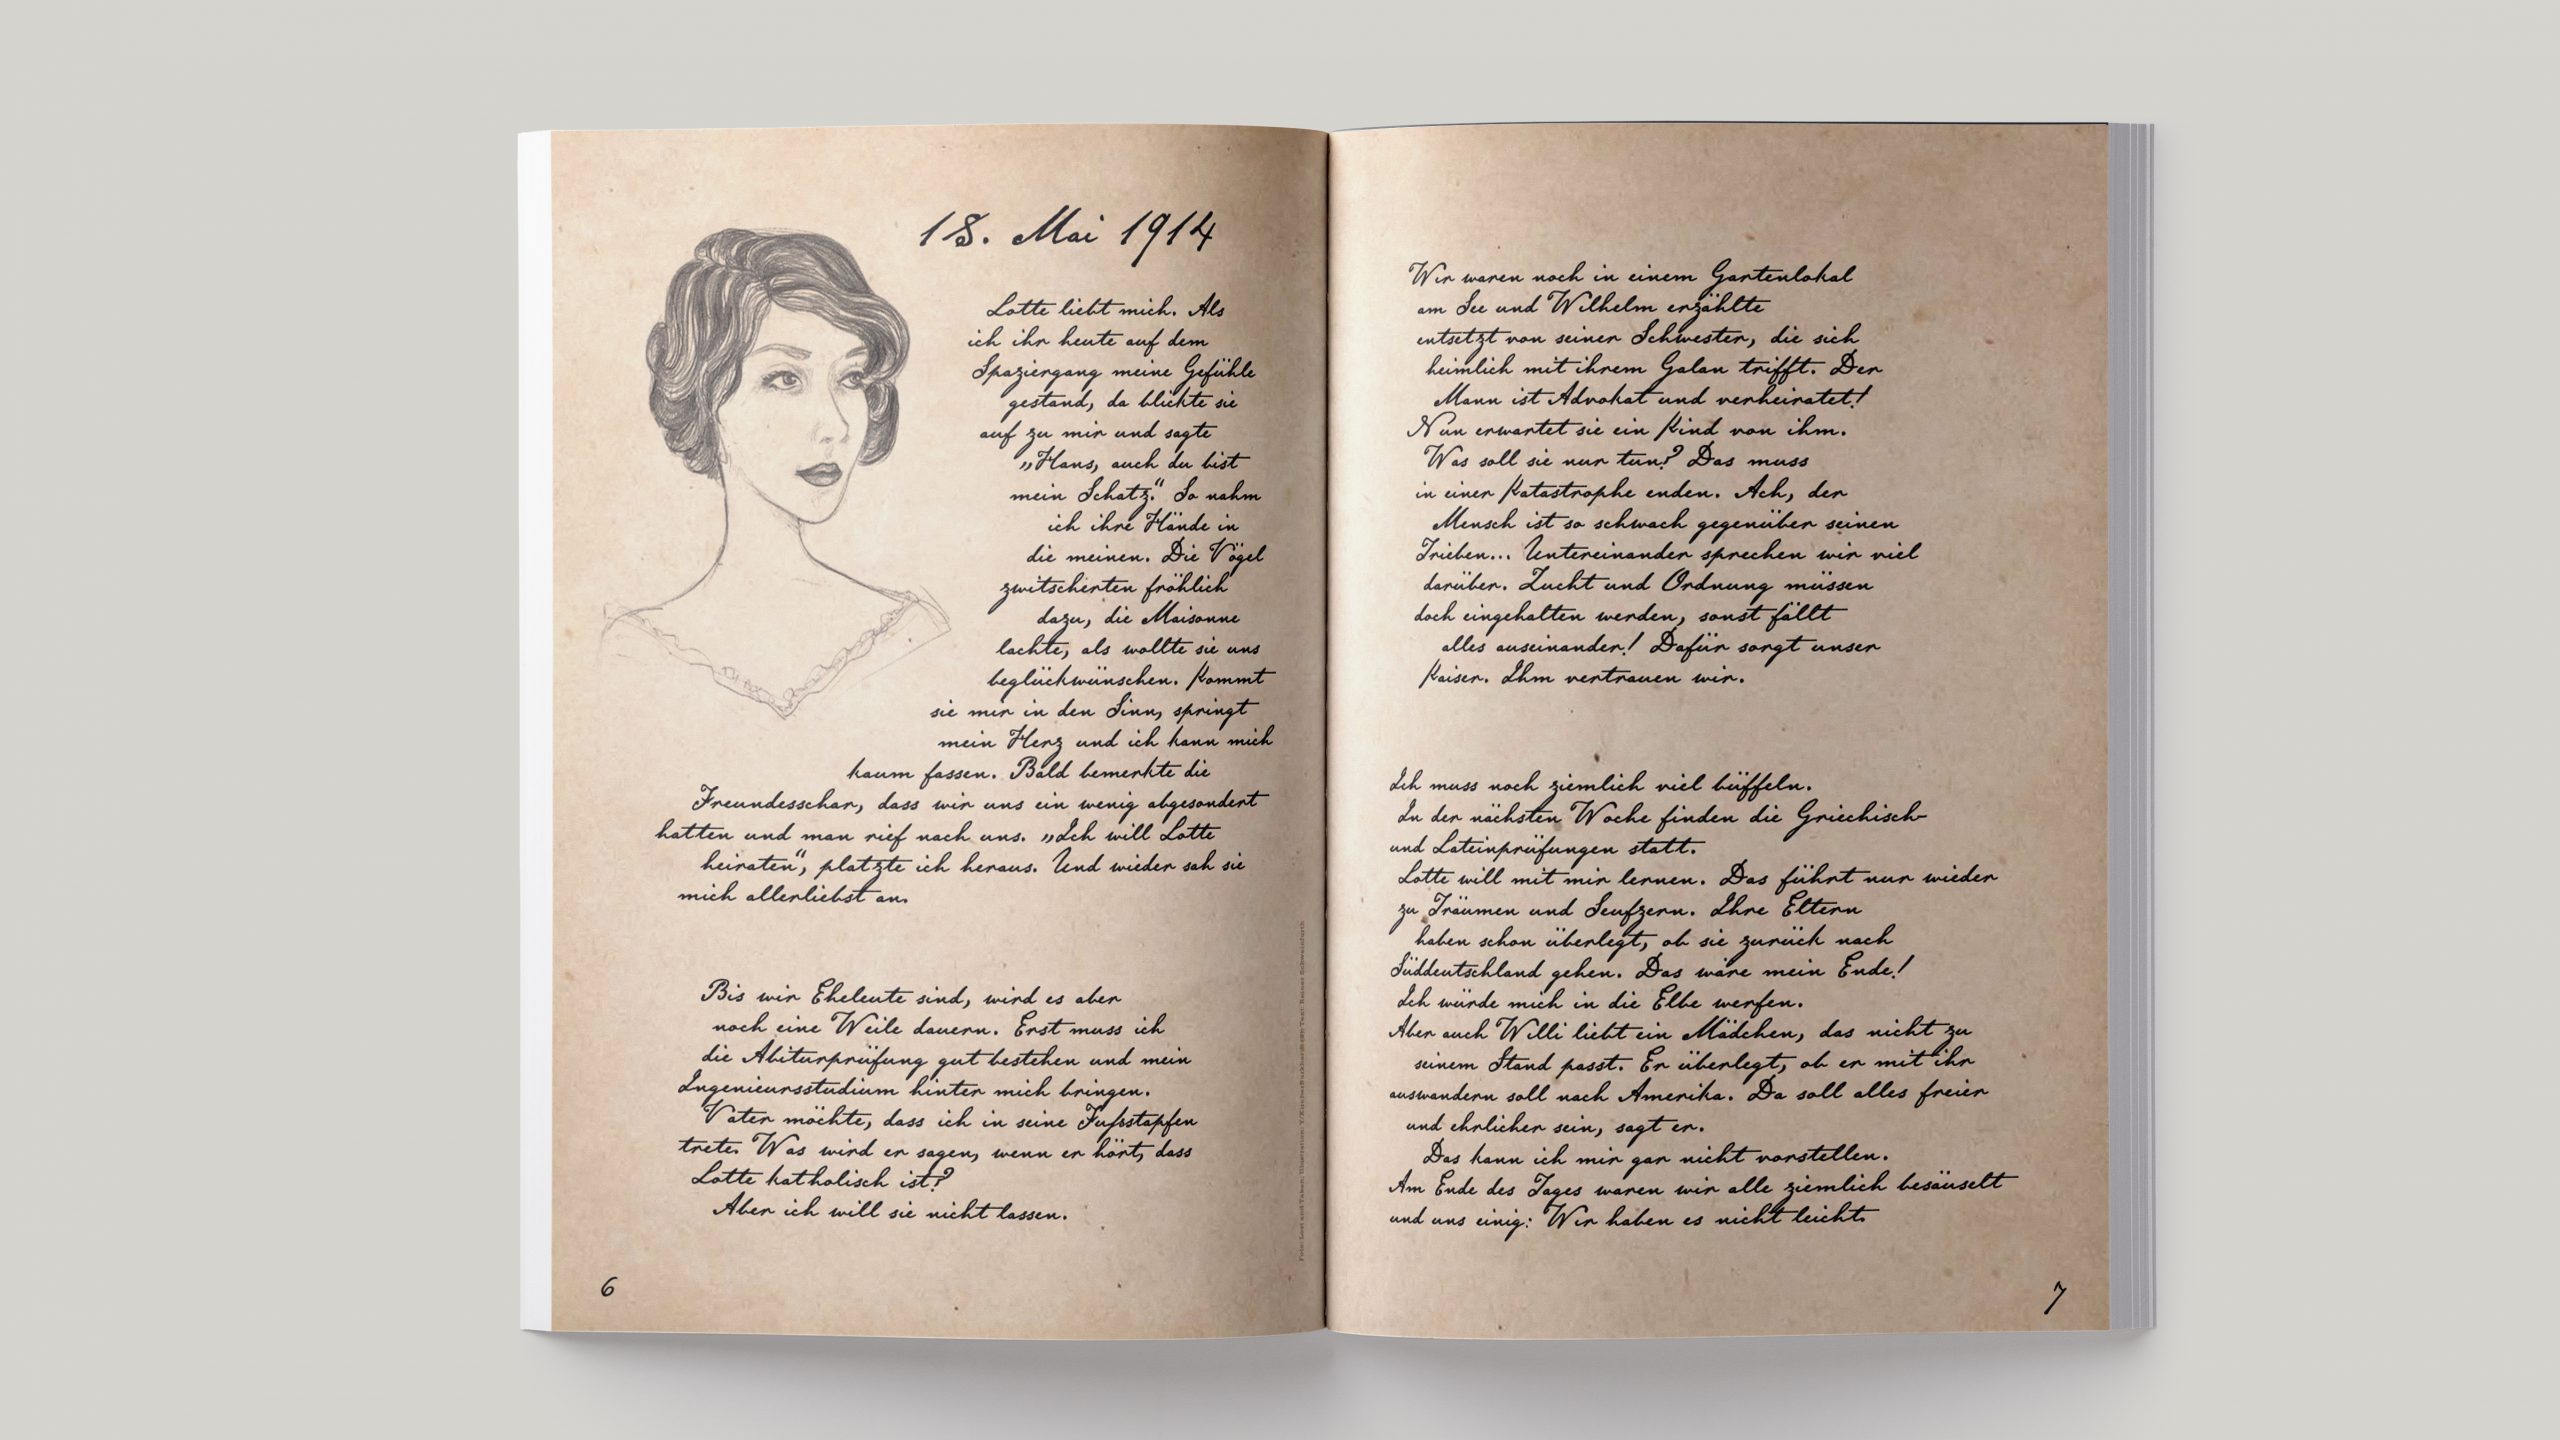 18. Mai 1914
Lotte liebt mich. Als
ich ihr heute auf dem
Spaziergang meine Gefühle
gestand, da blickte sie
auf zu mir und sagte
„Hans, auch du bist
mein Schatz.“ So nahm
ich ihre Hände in
die meinen. Die Vögel
zwitscherten fröhlich
dazu, die Maisonne
lachte, als wollte sie uns
beglückwünschen. Kommt
sie mir in den Sinn, springt
mein Herz und ich kann mich
kaum fassen. Bald bemerkte die
Freundesschar, dass wir uns ein wenig abgesondert
hatten und man rief nach uns. „Ich will Lotte
heiraten“, platzte ich heraus. Und wieder sah sie
mich allerliebst an.
Bis wir Eheleute sind, wird es aber
noch eine Weile dauern. Erst muss ich
die Abiturprüfung gut bestehen und mein
Ingenieursstudium hinter mich bringen.
Vater möchte, dass ich in seine Fußstapfen
trete. Was wird er sagen, wenn er hört, dass
Lotte katholisch ist?
Aber ich will sie nicht lassen.
6
Wir waren noch in einem Gartenlokal
am See und Wilhelm erzählte
entsetzt von seiner Schwester, die sich
heimlich mit ihrem Galan trifft. Der
Mann ist Advokat und verheiratet!
Nun erwartet sie ein Kind von ihm.
Was soll sie nur tun? Das muss
in einer Katastrophe enden. Ach, der
Mensch ist so schwach gegenüber seinen
Trieben... Untereinander sprechen wir viel
darüber. Zucht und Ordnung müssen
doch eingehalten werden, sonst fällt
alles auseinander! Dafür sorgt unser
Kaiser. Ihm vertrauen wir.
Ich muss noch ziemlich viel büffeln.
In der nächsten Woche finden die Griechisch-
und Lateinprüfungen statt.
Lotte will mit mir lernen. Das führt nur wieder
zu Träumen und Seufzern. Ihre Eltern
haben schon überlegt, ob sie zurück nach
Süddeutschland gehen. Das wäre mein Ende!
Ich würde mich in die Elbe werfen.
Aber auch Willi liebt ein Mädchen, das nicht zu
seinem Stand passt. Er überlegt, ob er mit ihr
auswandern soll nach Amerika. Da soll alles freier
und ehrlicher sein, sagt er.
Das kann ich mir gar nicht vorstellen.
Am Ende des Tages waren wir alle ziemlich besäuselt
und uns einig: Wir haben es nicht leicht.
7